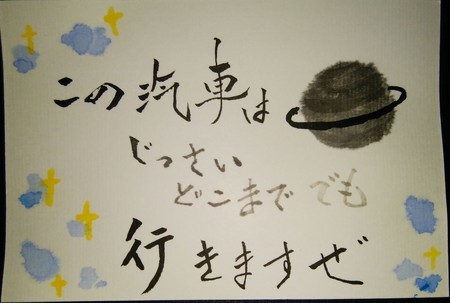 この汽車は
じっさい
どこまででも
行きますぜ